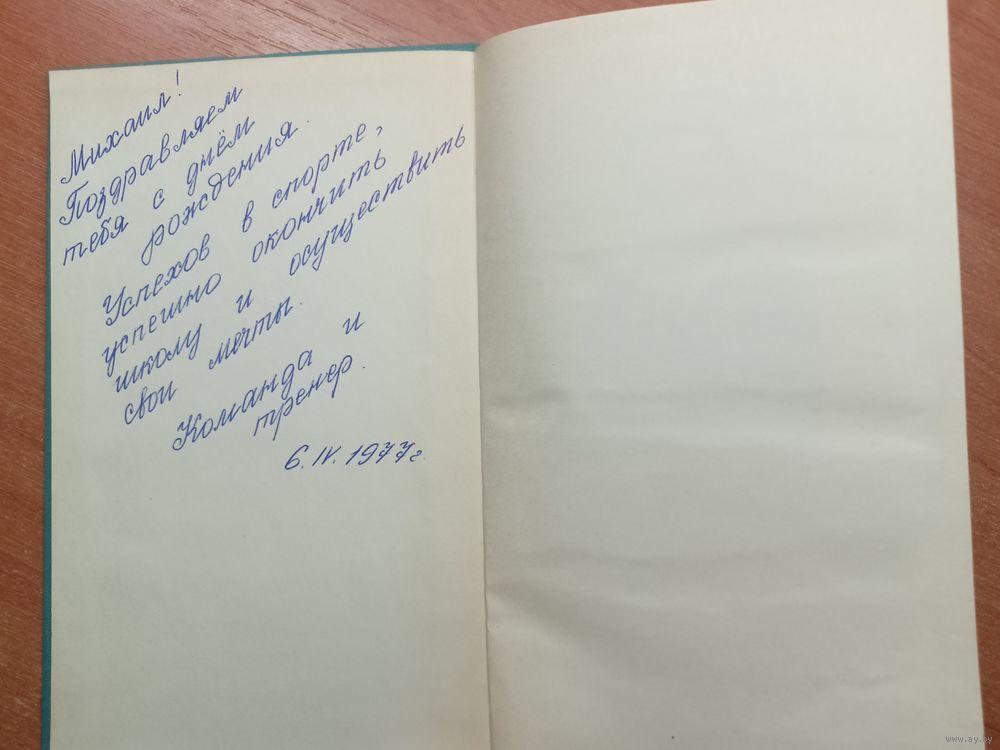 Михаил!
Поздравляем
тебя с днём
рождения.
Успехов в спорте,
успешно окончить
школу и осуществить
свои мечты.
Команда и
тренер.
6.IV.1977г.
www.ay.by